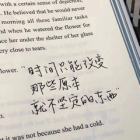 with a certain sense of
depressed. He believed he would never
morning all those familiar tasks
And when he watered the flower for
her under the shelter of her glass
very close to tears.
flower.
"时间只能改变
那些原本
就不坚定的东西
it was not because she had a cold.